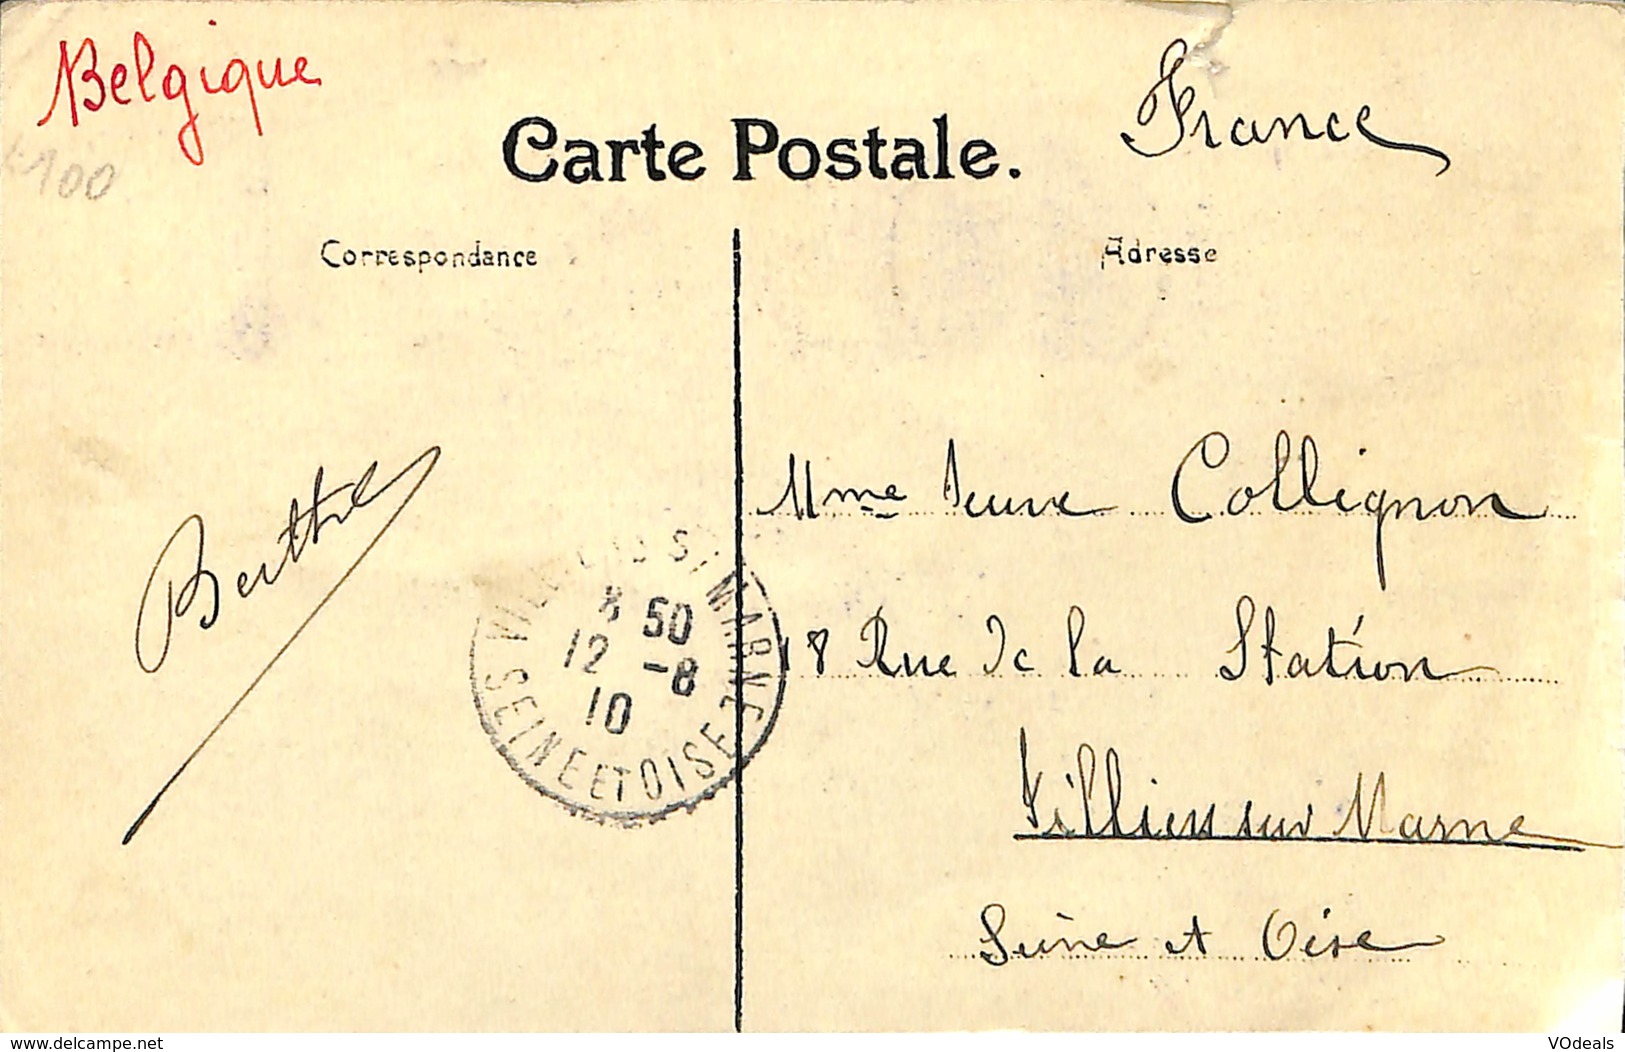 Belgique
100
France
Carte Postale.
Correspondance
Adresse
Berthe
Mme Veuve Collignon
18 Rue de la Station
Villiers sur Marne
Seine et Oise
S/ MARNE
SEINE ET OISE
8 50
12 -8
10
www.delcampe.net
VOdeals